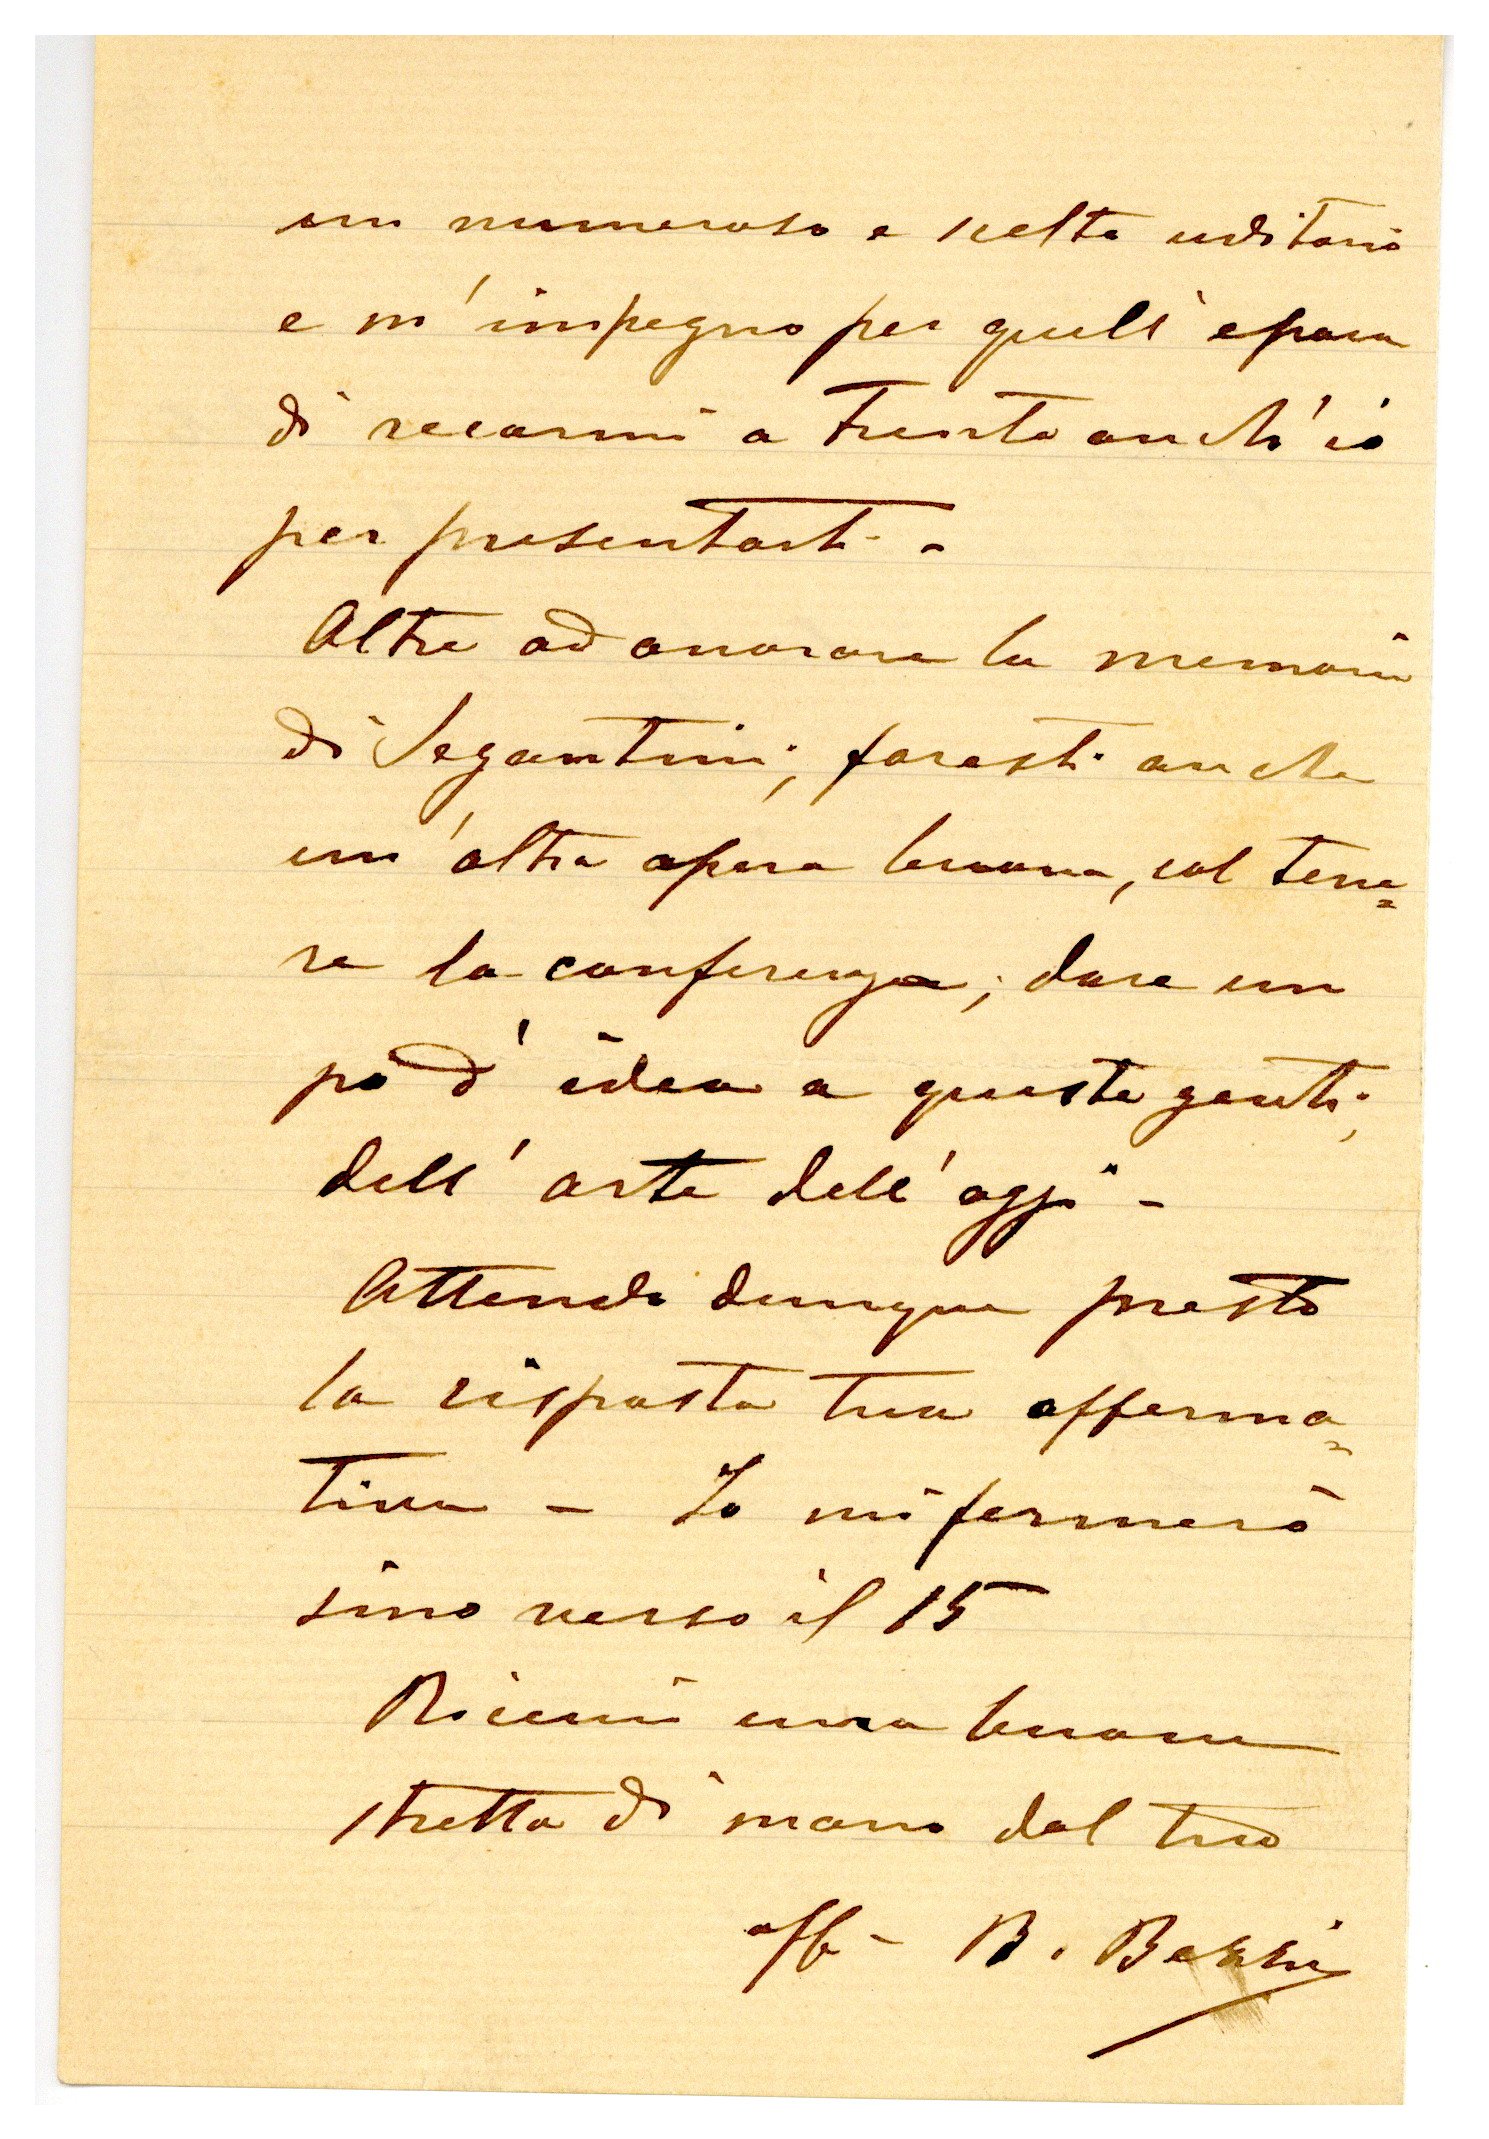 un numeroso e scelto uditorio
e m'impegno per quell'epoca
di recarmi a Trento anch'io
per presentarti -
Oltre ad onorare la memoria
di Segantini, faresti anche
un'altra opera buona, col tene=
re la conferenza; dare un
pò d'idea a queste genti,
dell'arte dell'oggi -
Attendo dunque presto
la risposta tua afferma=
tiva - Io mi fermerò
sino verso il 15
Ricevi una buona
stretta di mano dal tuo
aff - B. Bezzi